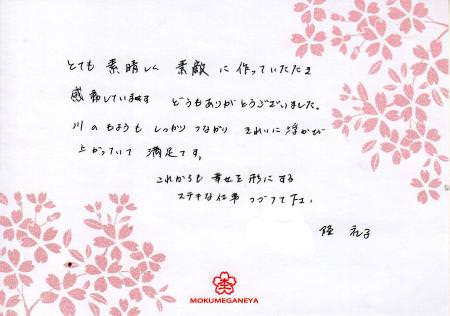 とても 素晴しく 素敵 に 作っていただき
感動しています どうもありがとうございました。
川 の もようも しっかり つながり きれいに 浮かび
上がっていて 満足です。
これからも 幸せを 形に する
ステキな 仕事 つづけて 下さい。
MOKUMEGANEYA